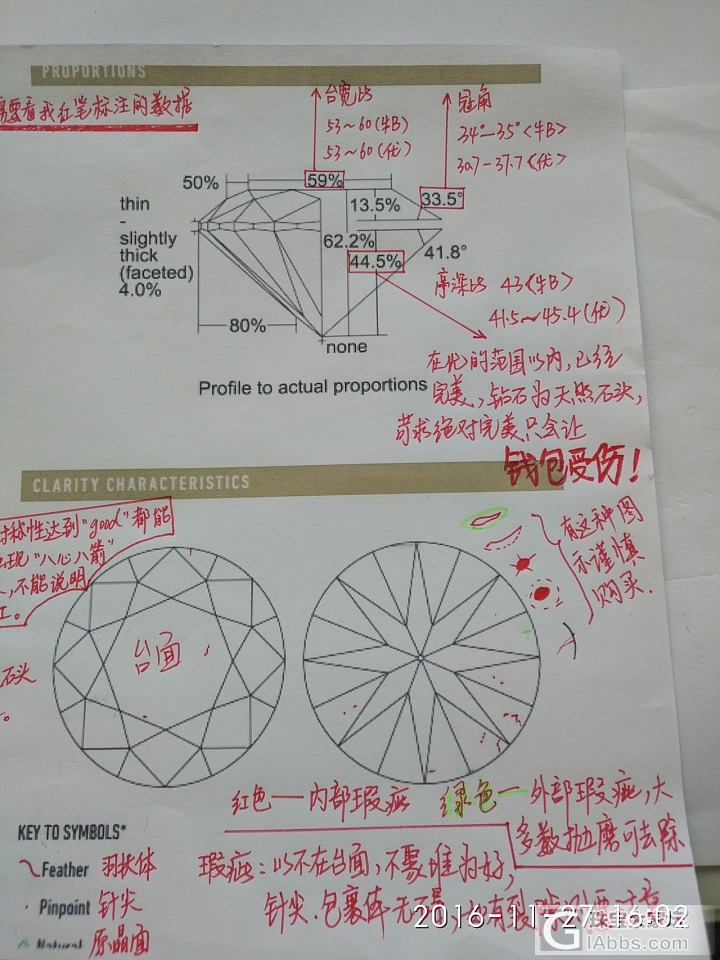 PROPORTIONS
要看我红笔标注的数据
台宽比
53~60(牛B)
53~60(优)
冠角
34°—35°<牛B>
30.7-37.7<优>
50%
59%
13.5%
33.5°
thin
-
slightly
thick
(faceted)
4.0%
62.2%
44.5%
41.8°
80%
none
亭深比 43<牛B>
41.5~45.4(优)
在此的范围以内,已经
完美,钻石为天然石头,
苛求绝对完美只会让
钱包受伤!
Profile to actual proportions
CLARITY CHARACTERISTICS
对称性达到"good"都能
出现"八心八箭"
,不能说明
工。
石头
。
台面
有这种图
示谨慎
购买.
红色—内部瑕疵 绿色—外部瑕疵,大
多数抛磨可去除
KEY TO SYMBOLS*
Feather 羽状体
Pinpoint 针尖
Natural 原晶面
瑕疵:以不在台面,不要堆为好,
针尖.包裹体无
2016-11-27 16:02
GIAbbs.com